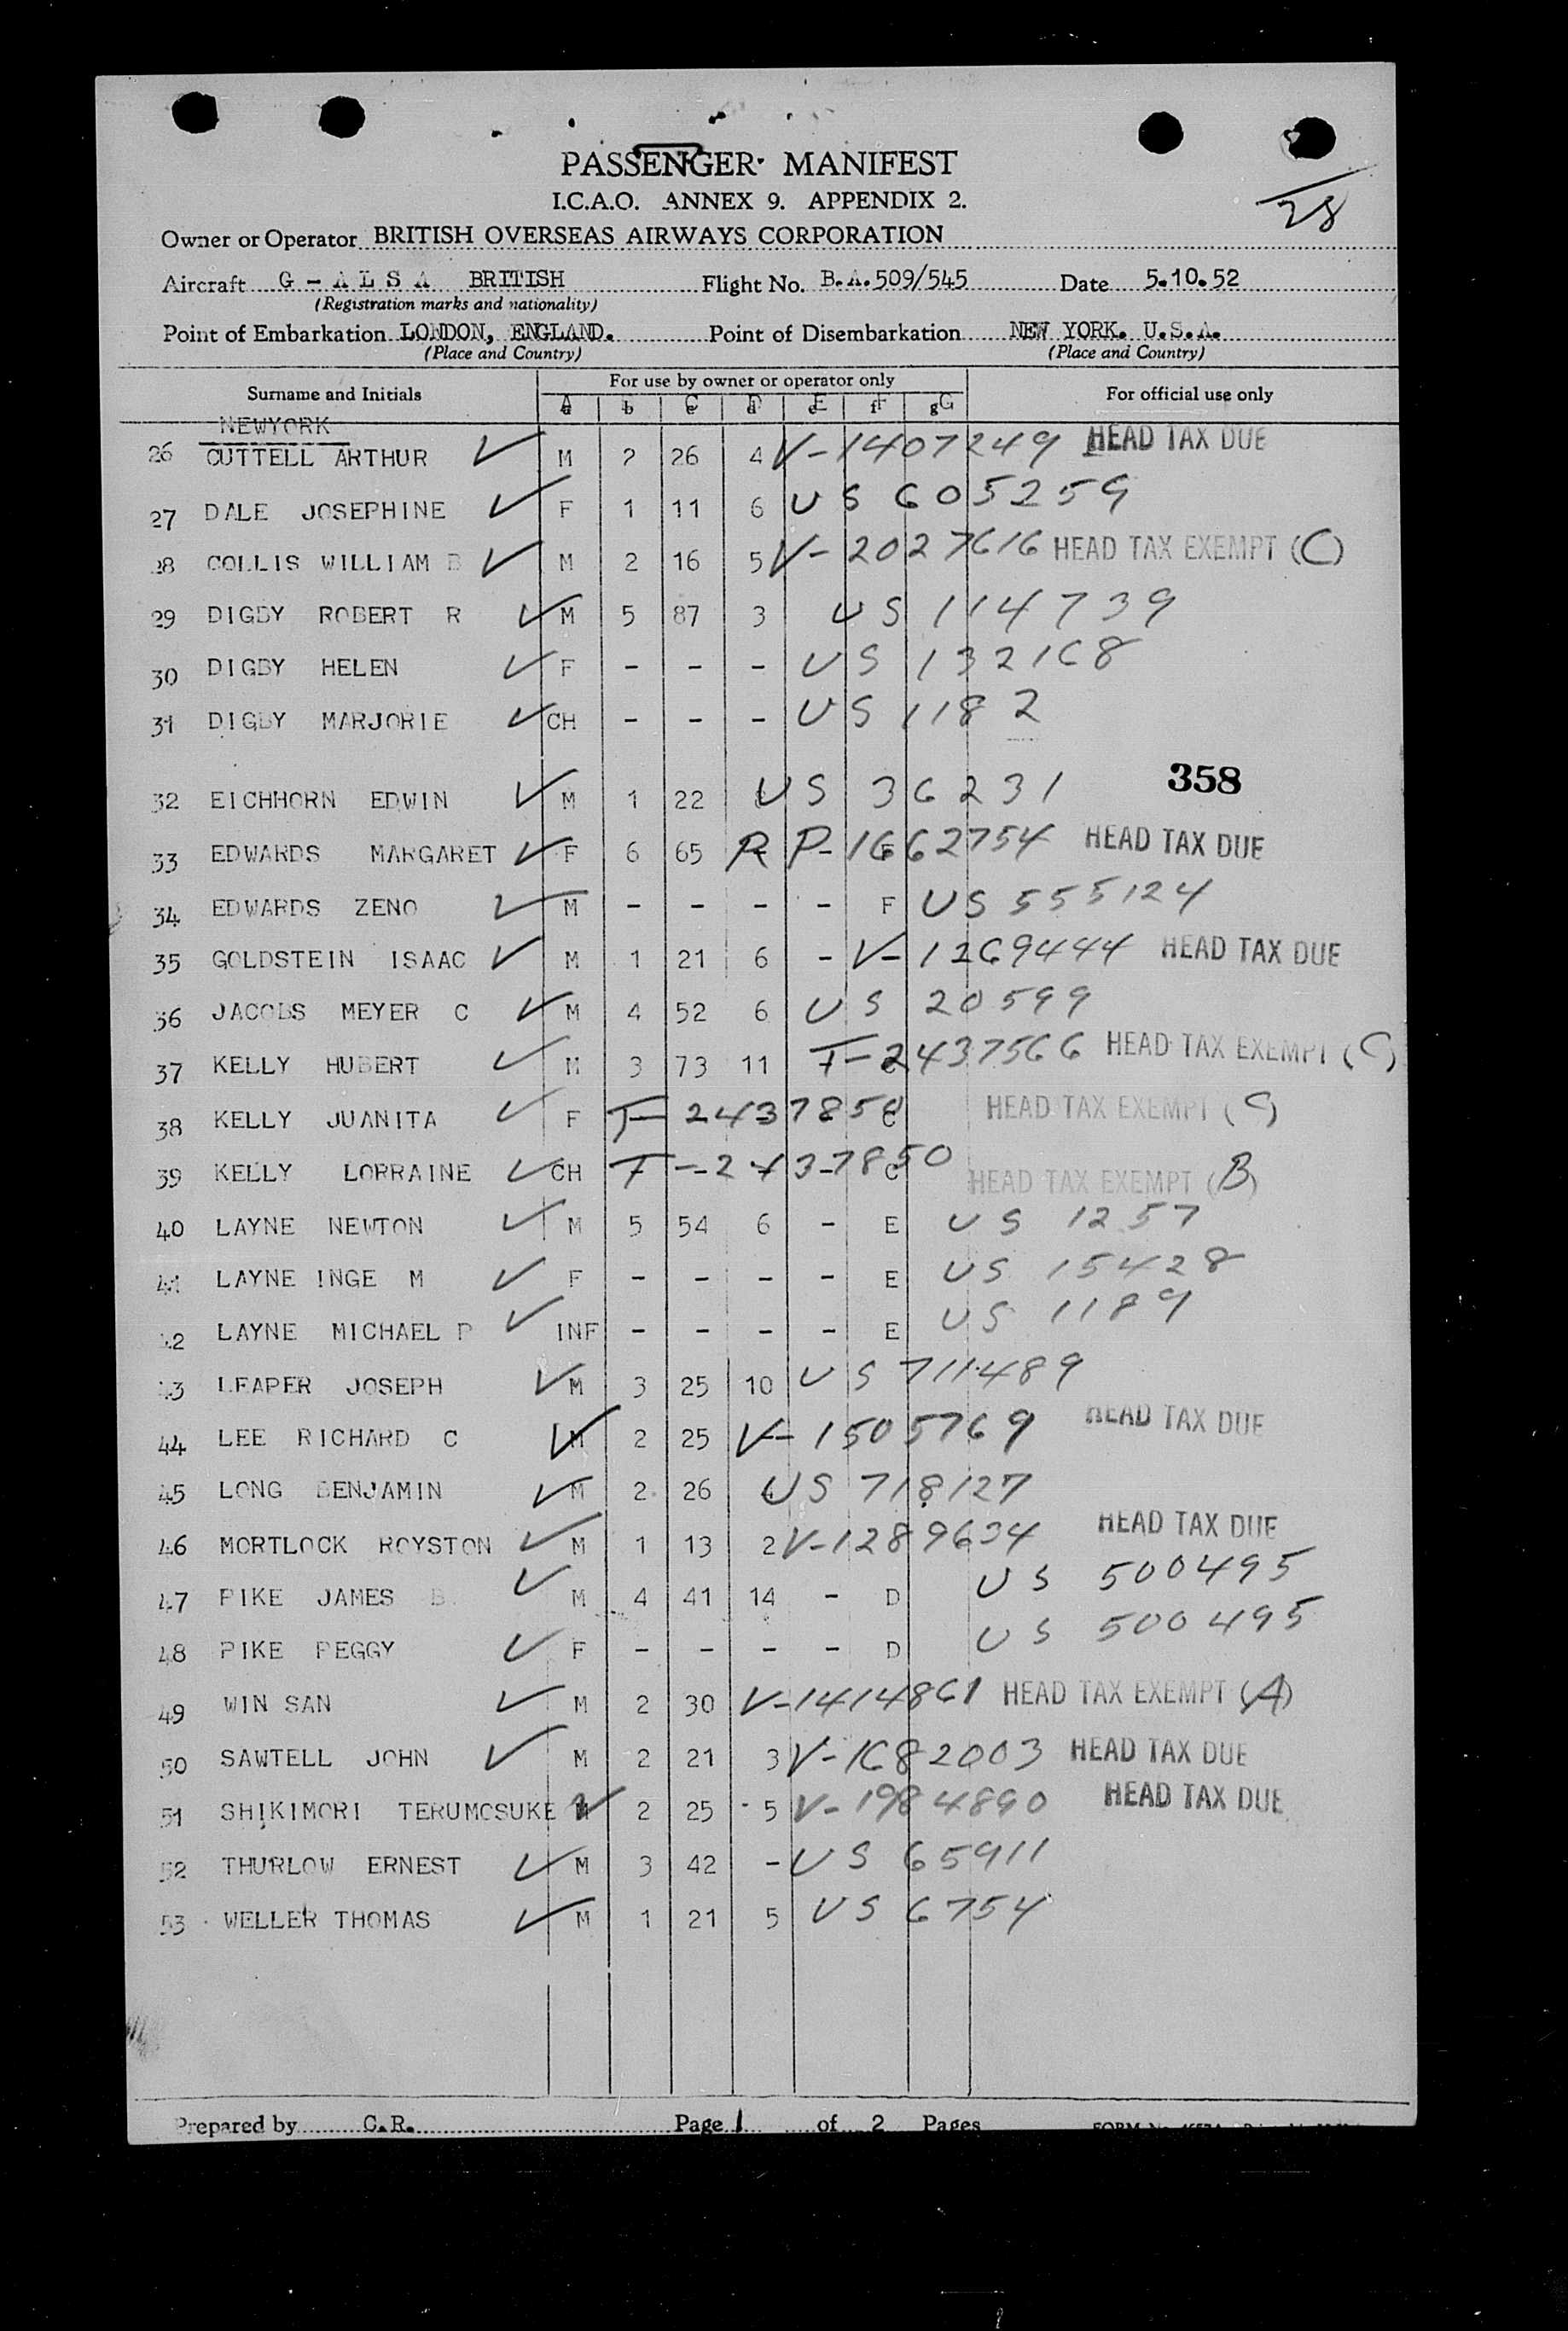 PASSENGER MANIFEST
I.C.A.O. ANNEX 9. APPENDIX 2.
28
Owner or Operator BRITISH OVERSEAS AIRWAYS CORPORATION
Aircraft G - A L S A BRITISH Flight No. B.A.509/545 Date 5.10.52
(Registration marks and nationality)
Point of Embarkation LONDON, ENGLAND. Point of Disembarkation NEW YORK. U.S.A.
(Place and Country) (Place and Country)
Surname and Initials For use by owner or operator only For official use only
A b C D E F G
NEWYORK
26 CUTTELL ARTHUR M 2 26 4 V-1407249 HEAD TAX DUE
27 DALE JOSEPHINE F 1 11 6 US 605259
28 COLLIS WILLIAM B M 2 16 5 V-2027616 HEAD TAX EXEMPT (C)
29 DIGBY ROBERT R M 5 87 3 US 114739
30 DIGBY HELEN F - - - US 132168
31 DIGBY MARJORIE CH - - - US 1182
358
32 EICHHORN EDWIN M 1 22 US 36231
33 EDWARDS MARGARET F 6 65 RP-1662754 HEAD TAX DUE
34 EDWARDS ZENO M - - - - F US 555124
35 GOLDSTEIN ISAAC M 1 21 6 - V-1269444 HEAD TAX DUE
36 JACOBS MEYER C M 4 52 6 US 20599
37 KELLY HUBERT M 3 73 11 T-2437566 HEAD TAX EXEMPT (C)
38 KELLY JUANITA F T-2437850 C HEAD TAX EXEMPT (C)
39 KELLY LORRAINE CH T-2437850 C HEAD TAX EXEMPT (B)
40 LAYNE NEWTON M 5 54 6 - E US 1257
41 LAYNE INGE M F - - - - E US 15428
42 LAYNE MICHAEL P INF - - - - E US 1189
43 LEAPER JOSEPH M 3 25 10 US 711489
44 LEE RICHARD C M 2 25 V-1505769 HEAD TAX DUE
45 LONG BENJAMIN M 2 26 US 718127
46 MORTLOCK ROYSTON M 1 13 2 V-1289634 HEAD TAX DUE
47 PIKE JAMES B. M 4 41 14 - D US 500495
48 PIKE PEGGY F - - - - D US 500495
49 WIN SAN M 2 30 V-1414861 HEAD TAX EXEMPT (A)
50 SAWTELL JOHN M 2 21 3 V-1682003 HEAD TAX DUE
51 SHIKIMORI TERUMOSUKE M 2 25 5 V-1984890 HEAD TAX DUE
52 THURLOW ERNEST M 3 42 - US 65911
53 WELLER THOMAS M 1 21 5 US 6754
Prepared by C.R. Page 1 of 2 Pages